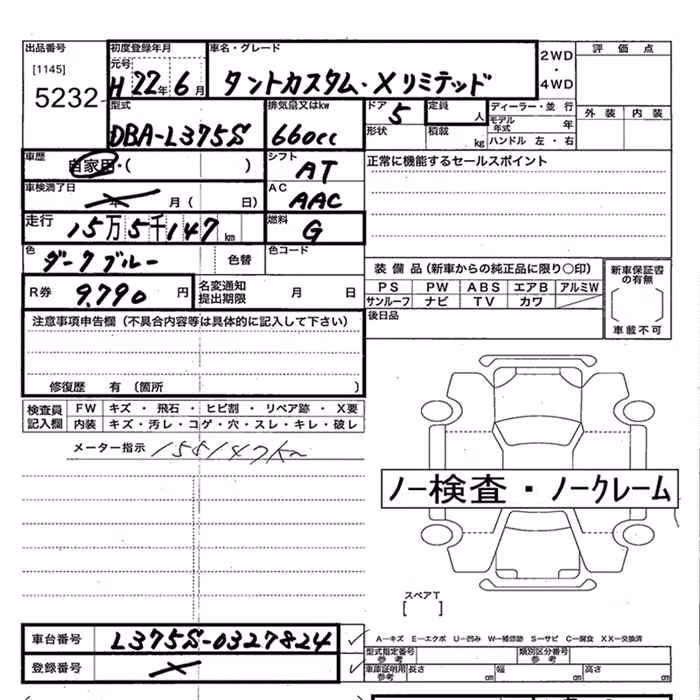 出品番号 初度登録年月 車名・グレード 2WD ・ 4WD 評価点
[1145] 元号
5232 H 22年 6月 タントカスタム・Xリミテッド
型式 排気量又はkw ドア 5 定員 人 ディーラー・並行 外装 内装
DBA-L375S 660cc 形状 積載 kg モデル年式 年
ハンドル 左・右
車歴 自家用・( ) シフト AT 正常に機能するセールスポイント
車検満了日 年 月( 日) AC AAC
走行 15万5千147km 燃料 G
色 ダークブルー 色替 色コード
装備品(新車からの純正品に限り○印) 新車保証書の有無
R券 9,790円 名変通知提出期限 月 日 PS PW ABS エアB アルミW
サンルーフ ナビ TV カワ
注意事項申告欄(不具合内容等は具体的に記入して下さい) 後日品 車載不可
修復歴 有 (箇所 )
検査員記入欄 FW キズ・飛石・ヒビ割・リペア跡・X要
内装 キズ・汚レ・コゲ・穴・スレ・キレ・破レ
メーター指示 155147km
ノー検査・ノークレーム
スペアT
[ ]
車台番号 L375S-0327824 A-キズ E-エクボ U-凹み W-補修跡 S-サビ C-腐食 XX-交換済
型式指定番号 参考 類別区分番号 参考
登録番号 車庫証明用参考 長さ cm 幅 cm 高さ cm